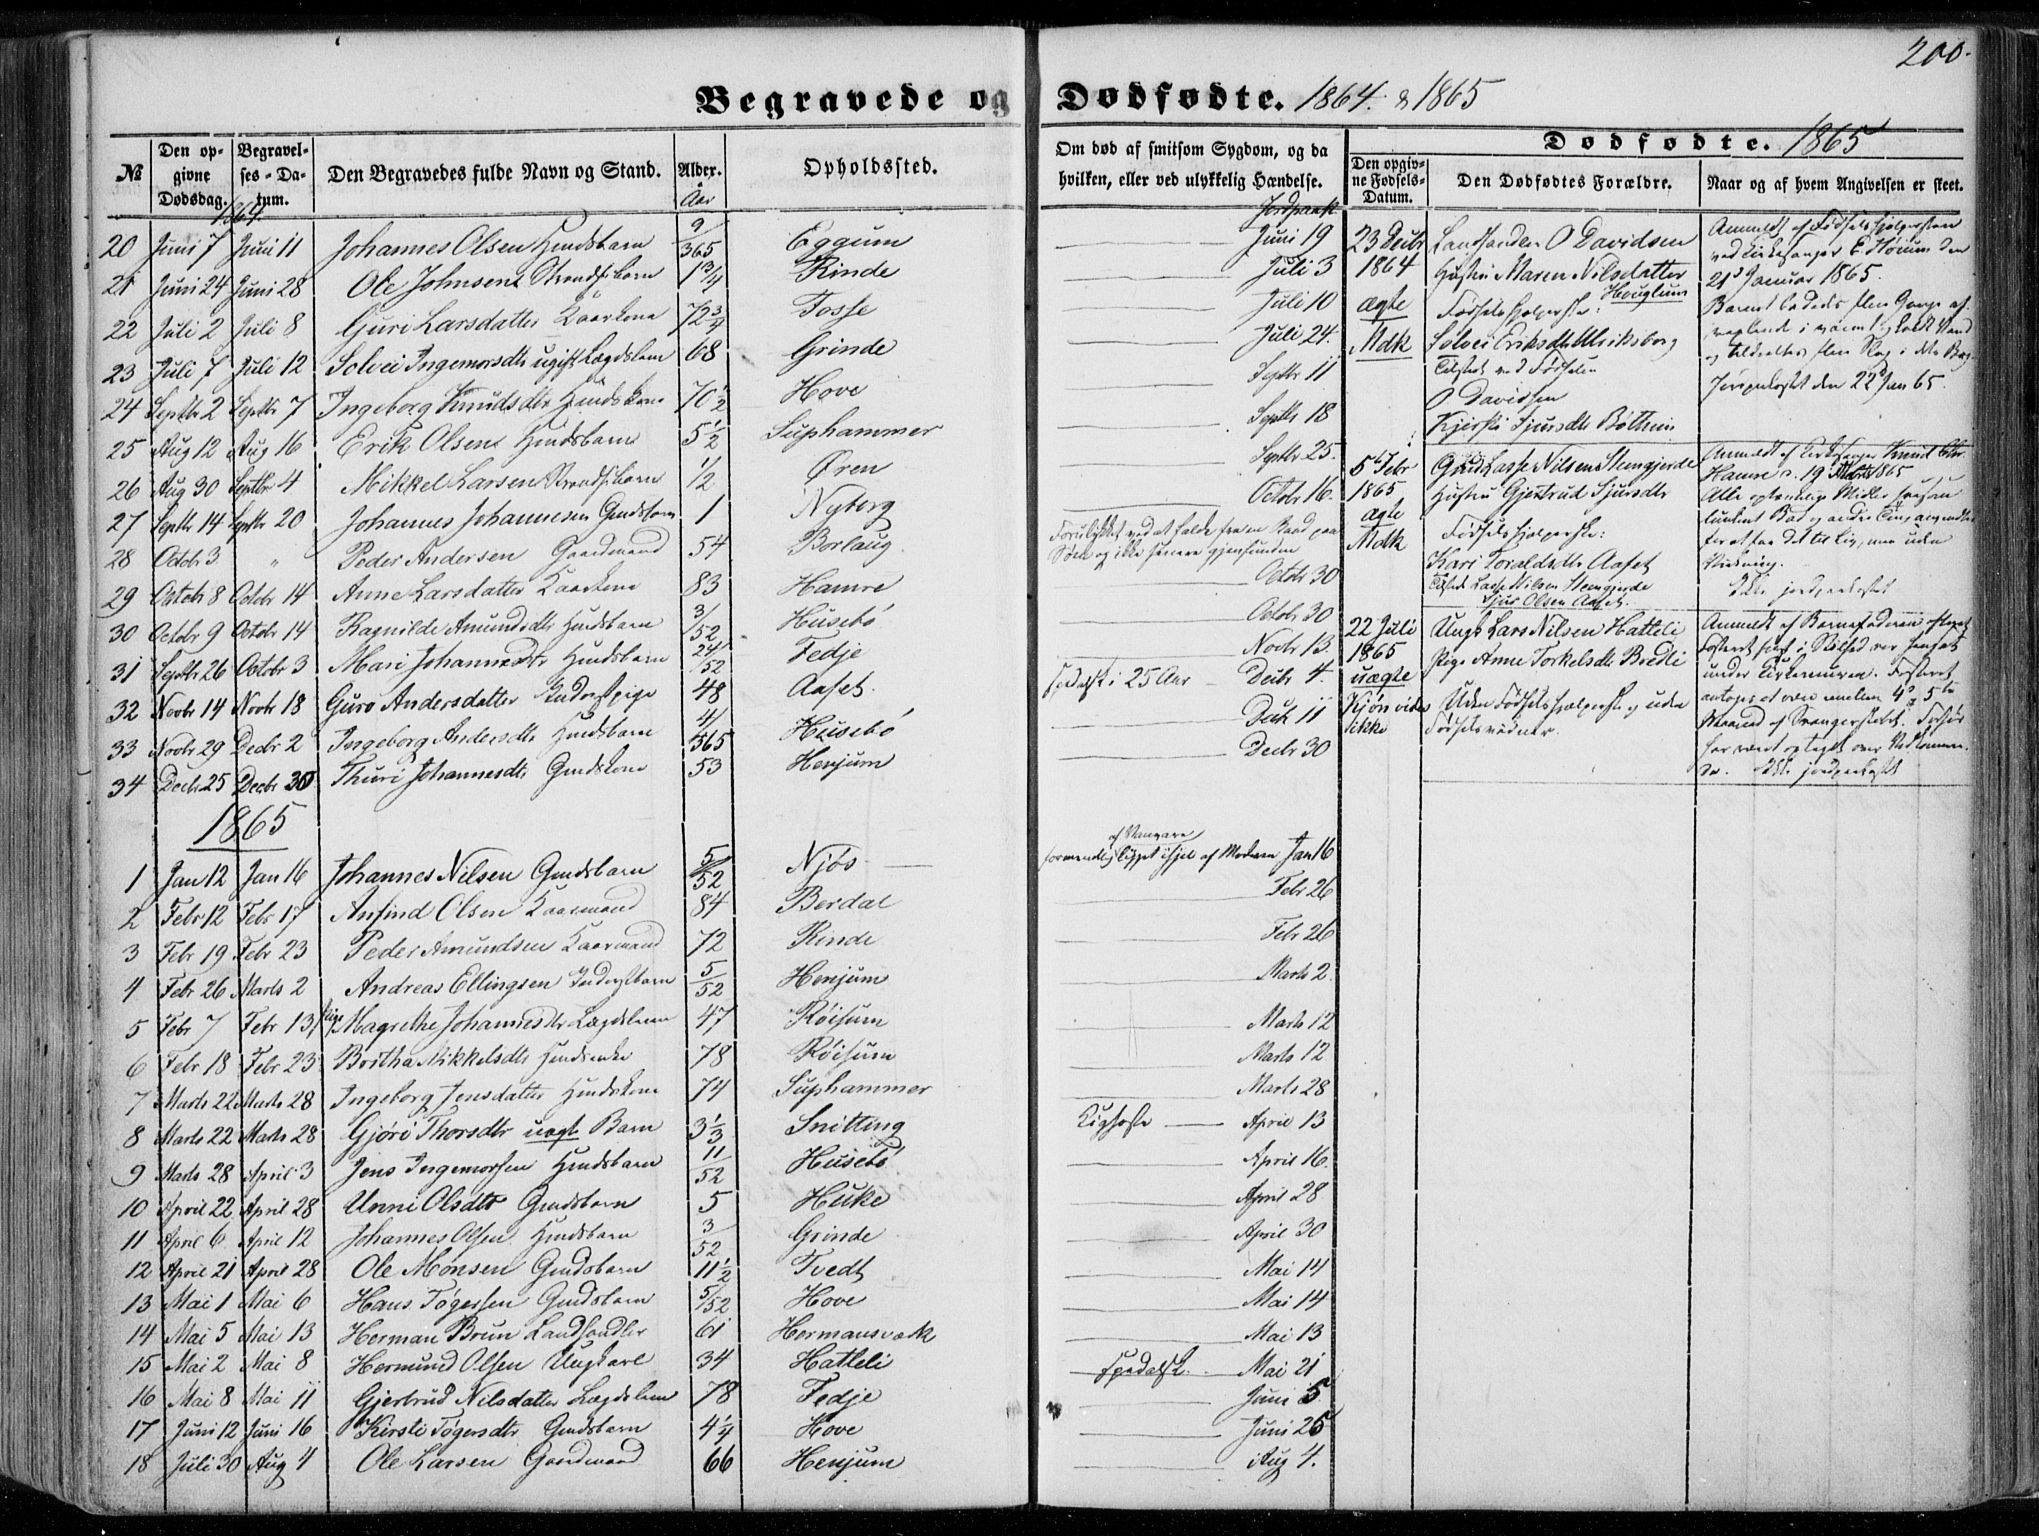 200.
Begravede og Dødfødte. 1864. & 1865
№ Den opgivne Dødsdag. Begravelses-Datum. Den Begravedes fulde Navn og Stand. Alder. Aar Opholdssted.
Om død af smitsom Sygdom, og da hvilken, eller ved ulykkelig Hændelse. Jordpaak
1864.
20 Juni 7 Juni 11 Johannes Olsen Huusbarn 9/365 Eggum Juni 19
21 Juni 24 Juni 28 Ole Johnsen Strandsbarn 1 3/4 Rinde Juli 3
22 Juli 2 Juli 8 Guri Larsdatter Kaarkone 72 3/4 Fosse Juli 10
23 Juli 7 Juli 12 Solvei Ingemorsdtr ugift Lægdslem 68 Grinde Juli 24.
24 Septbr 2 Septbr 7 Ingeborg Knudsdtr Huuskone 70 1/2 Hove Septbr 11
25 Aug 12 Aug 16 Erik Olsen Huusbarn 5 1/2 Suphammer Septbr 18
26 Aug 30 Septbr 4 Mikkel Larsen Strandsbarn 1/2 Øren Septbr 25.
27 Septbr 14 Septbr 20 Johannes Johannesen Gmdsbarn 1 Nyborg Octobr 16.
28 Octobr 3. " Peder Andersen Gaardmand 54 Borlaug Forulykket ved at falde fra en Baad paa Søen og ikke senere gjenfunden
29 Octobr 8 Octobr 14 Anne Larsdatter Kaarkone 83 Hamre Octobr 30
30 Octobr 9 Octobr 14 Ragnilde Amundsdtr Huusbarn 3/52 Husebö Octobr 30
31 Septbr 26 Octobr 3 Mari Johannesdtr Huusbarn 24/52 Fedje Novbr 13.
32 Novbr 14 Novbr 18 Guro Andersdatter Inderstpige 48 Aaset. spedalsk i 25 Aar Decbr 4.
33 Novbr 29 Decbr 2 Ingeborg Andersdtr Huusbarn 4/365 Husebö Decbr 11
34 Decbr 25 Decbr 30 Thuri Johannesdtr Gmdskone 53 Henjum Decbr 30
1865
1 Jan 12 Jan 16 Johannes Nilsen Gmdsbarn 5/52 Njøs formentlig af Vanvare ligget ihjel af Moderen Jan 16
2 Febr 12 Febr 17 Anfind Olsen Kaarmand 84 Berdal Febr 26
3 Febr 19 Febr 23 Peder Amundsen Kaarmand 72 Rinde Febr 26
4 Febr 26 Marts 2 Andreas Ellingsen Inderstbarn 5/52 Henjum Marts 2.
5 Febr 7 Febr 13 Pige Magrethe Johannesdtr Lægdslem 47 Røisum Marts 12
6 Febr 18 Febr 23 Britha Mikkelsdtr Huusenke 78 Røisum Marts 12
7 Marts 22 Marts 28 Ingeborg Jensdatter Huuskone 74 Suphammer Marts 28
8 Marts 22 Marts 28 Gjöri Thorsdtr uægt Barn 3 1/3 Snitting Kighoste April 13
9 Marts 28 April 3 Jens Ingemorsen Huusbarn 11/52 Husebö April 16.
10 April 22 April 28 Unni Olsdtr Gmdsbarn 5 Huke April 28
11 April 6 April 12 Johannes Olsen Huusbarn 3/52 Grinde April 30
12 April 21 April 28 Ole Monsen Gmdsbarn 11 1/2 Tvedt Mai 14
13 Mai 1 Mai 6 Hans Tøgersen Gmdsbarn 5/52 Hove Mai 14
14 Mai 5 Mai 13 Herman Brun Landhandler 61 Hermansværk Mai 13
15 Mai 2 Mai 8 Hermund Olsen Ungkarl 34 Hatleli Spedalsk. Mai 21
16 Mai 8 Mai 11 Gjertrud Nilsdatter Lægdslem 78 Fedje Juni 5.
17 Juni 12 Juni 16 Kirsti Tøgersdtr Gmdsbarn 4 1/4 Hove Juni 25
18 Juli 30 Aug 4 Ole Larsen Gaardmand 66 Henjum Aug 4.
Dødfødte. 1865
Den opgivne Fødsels-Datum. Den Dødfødtes Forældre. Naar og af hvem Angivelsen er skeet.
23 Decbr 1864 ægte Mdk
Landhandler O Davidsen
Hustru Maren Nilsdatter
Houglum
Fødselshjelperske:
Solvei Eriksdtr Ulriksborg
Tilstede ved Fødselen
O Davidsen
Kjersti Sjursdtr Böthun
Anmeldt af Fødselshjelpersken
ved Kirkesanger E Hörum den
21 Januar 1865.
Barnet badedes flere Gange af
vexlende i varmt og koldt Vand
og tildeltes flere Slag i dets Bag.
Jordpaakastet den 22 Jan 65.
5 Febr 1865 ægte Mdk
Gmd Lasse Nilsen Stengjerde
Hustru Gjertrud Sjursdtr
Fødselshjelperske:
Kari Toraldsdtr Aaset
Tilstede Lasse Nilsen Stengjerde
Sjur Olsen Aaset.
Anmeldt af Kirkesanger Knud
Hamre d. 19 Marts 1865
Virkning.
Ikke jordpaakastet
22 Juli 1865 uægte Kjön vides ikke
Ungk Lars Nilsen Hatleli
Pige Anne Torkelsdtr Bredli
Uden Fødselshjelperske og uden
Fødselsvidner.
Anmeldt af Barnefaderen efterat
Fosteret
under Kirkemuren. Fosteret
antoges at være mellem 4de og 5te
Maaned af Svangerskabet. Forhör
har været optaget over Vedkommen-
de. Ikke jordpaakastet